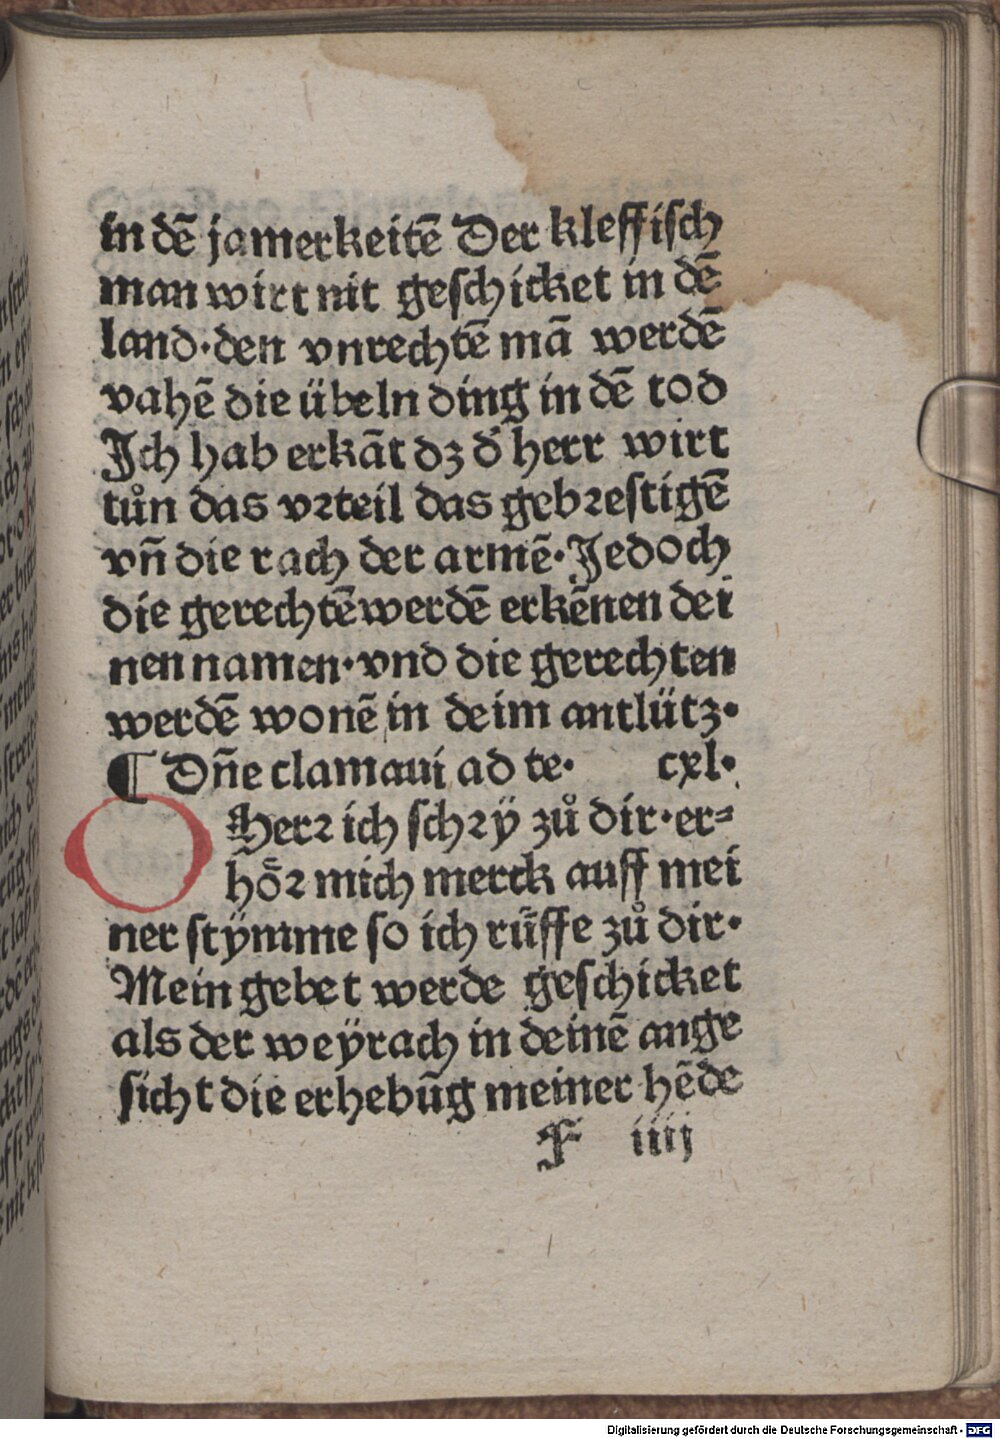 in dē jamerkeitē Der kleffisch
man wirt nit geschicket in dē
land·den vnrechtē mā werdē
vahē die übeln ding in dē tod
Ich hab erkāt dz d' herr wirt
tůn das vrteil das gebrestigē
vn̄ die rach der armē·Jedoch
die gerechtē werdē erkēnen dei
nen namen·vnd die gerechten
werdē wonē in deim antlütz·
¶ Dn̄e clamaui ad te· cxl·
O Herr ich schrÿ zů dir·er⸗
hȫr mich merck auff mei
ner stÿmme so ich rǖffe zů dir·
Mein gebet werde geschicket
als der weÿrach in deinē ange
sicht die erhebūg meiner hēde
F iiij
Digitalisierung gefördert durch die Deutsche Forschungsgemeinschaft - DFG